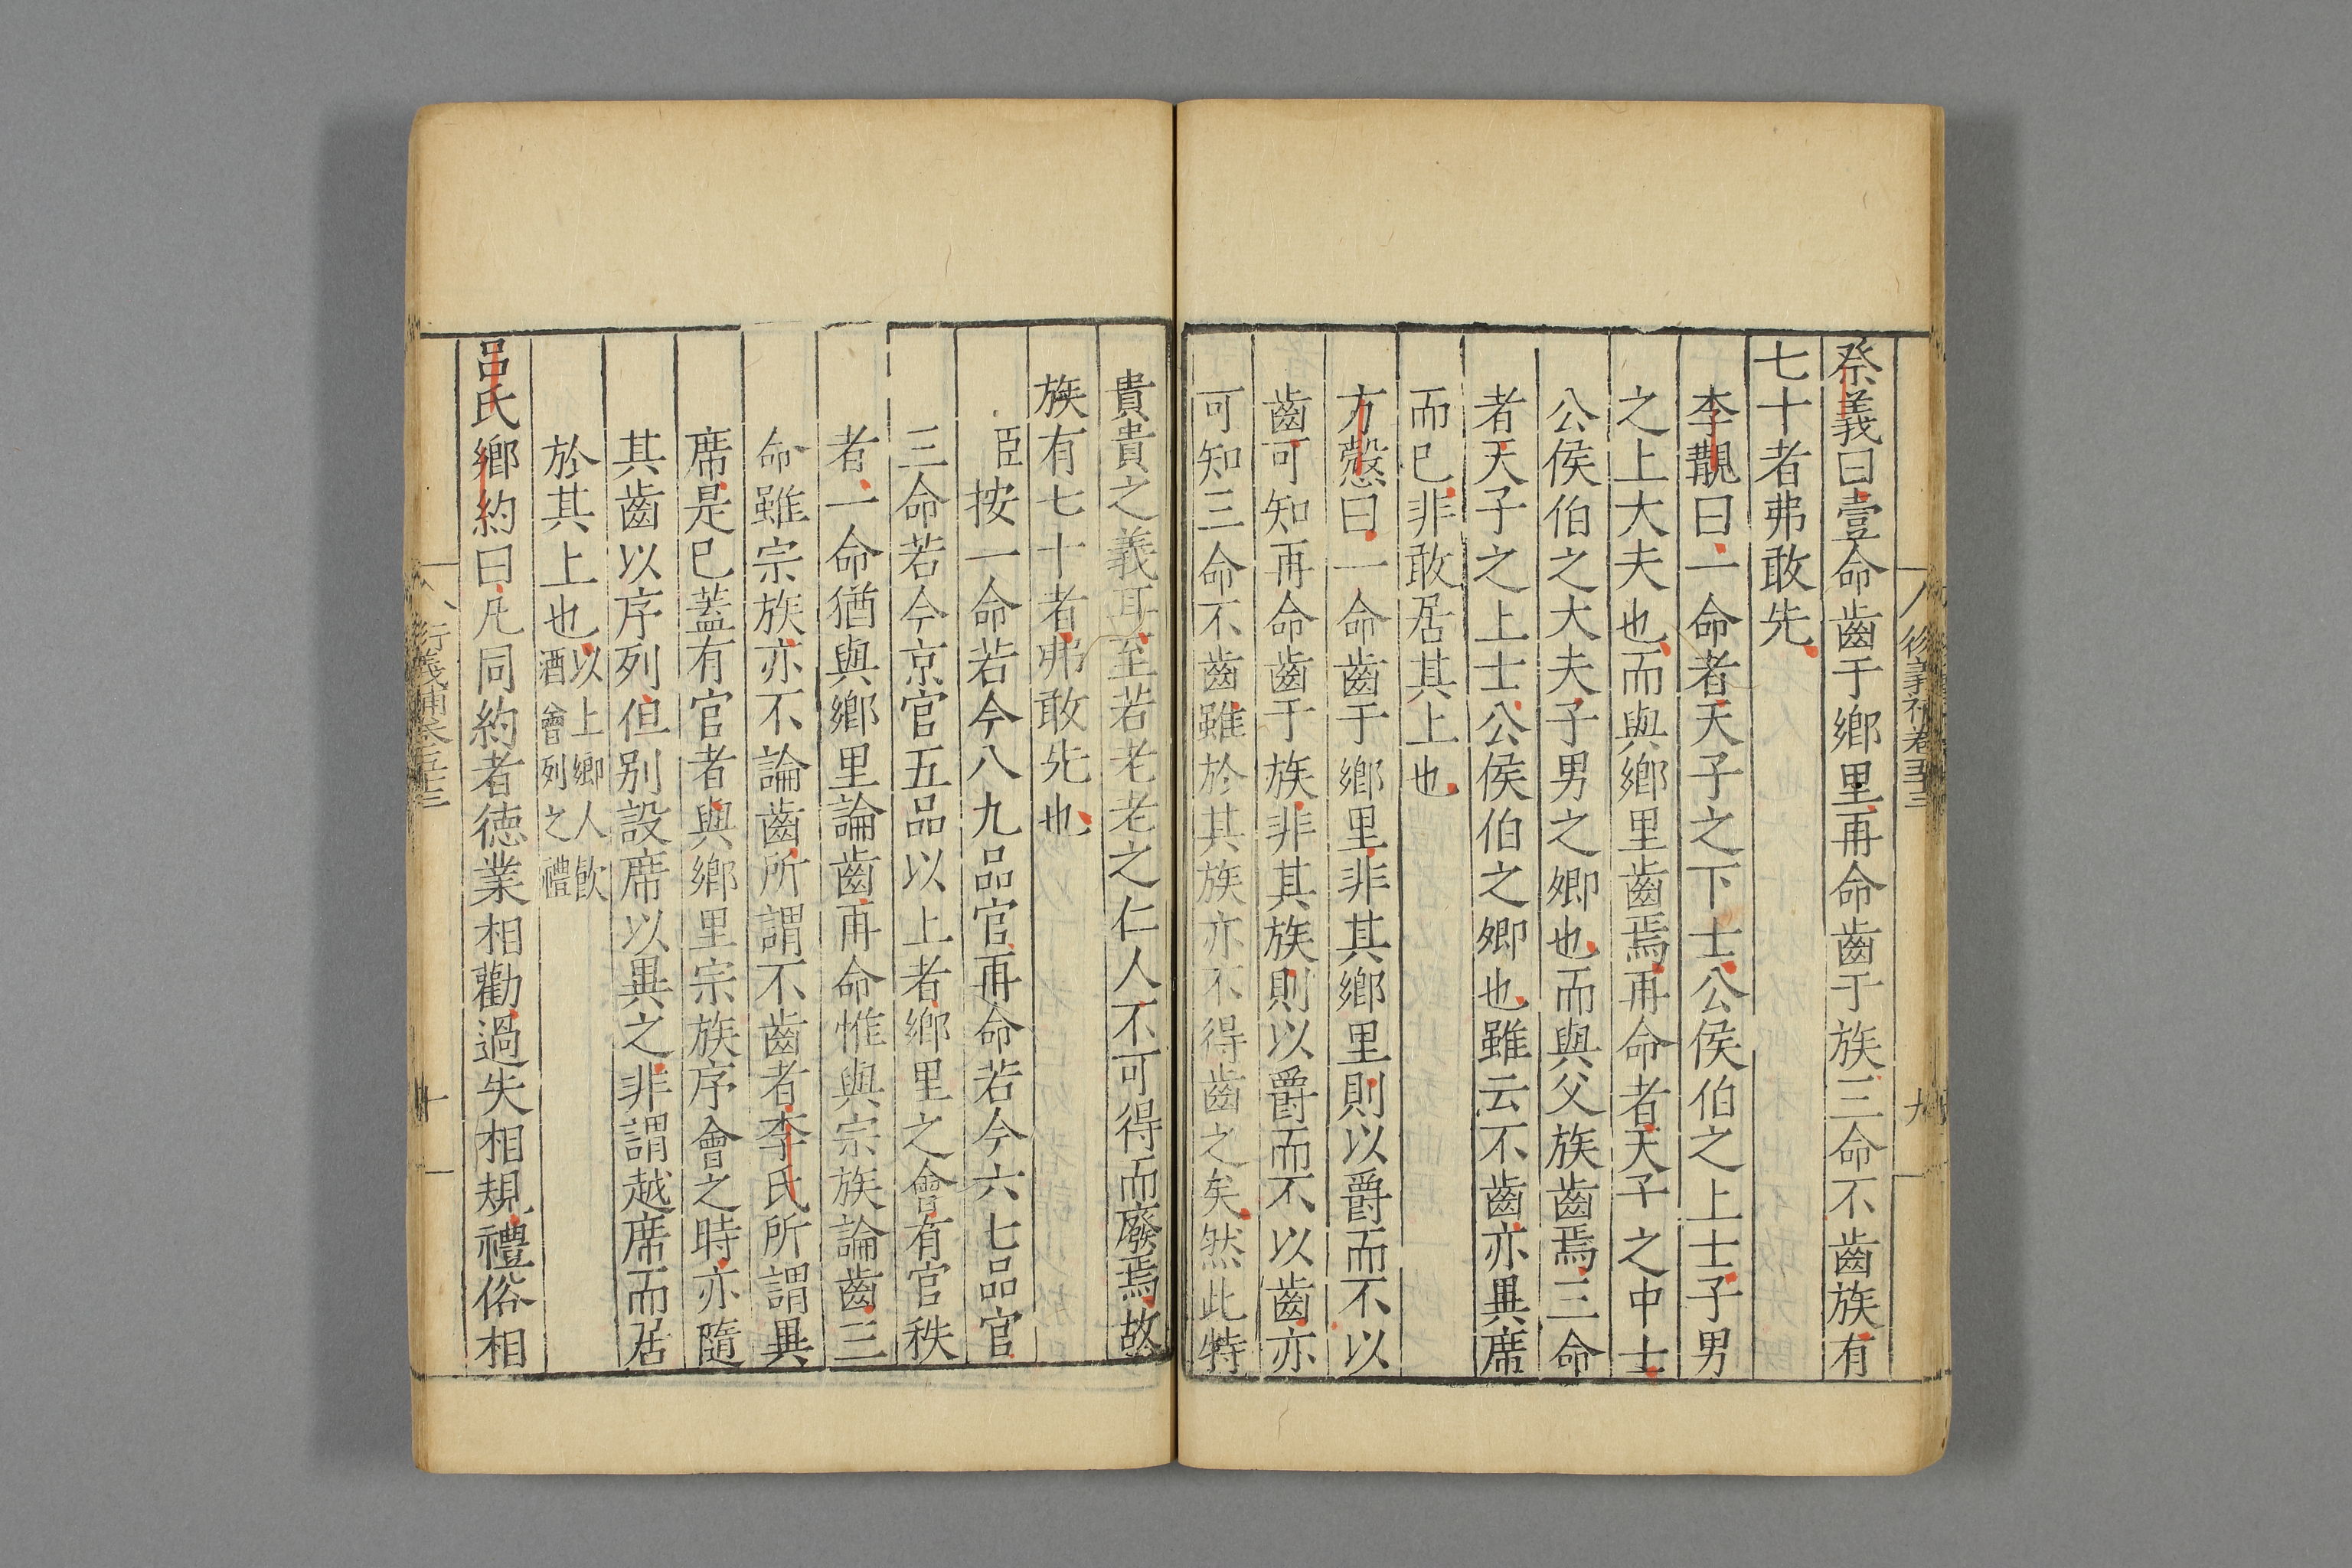 祭義曰壹命齒于鄉里再命齒于族三命不齒族有
七十者弗敢先
李覯曰一命者天子之下士公侯伯之上士子男
之上大夫也而與鄉里齒焉再命者天子之中士
公侯伯之大夫子男之卿也而與父族齒焉三命
者天子之上士公侯伯之卿也雖云不齒亦異席
而已非敢居其上也
方慤曰一命齒于鄉里非其鄉里則以爵而不以
齒可知再命齒于族非其族則以爵而不以齒亦
可知三命不齒雖於其族亦不得齒之矣然此特
貴貴之義耳至若老老之仁人不可得而廢焉故
族有七十者弗敢先也
臣按一命若今八九品官再命若今六七品官
三命若今京官五品以上者鄉里之會有官秩
者一命猶與鄉里論齒再命惟與宗族論齒三
命雖宗族亦不論齒所謂不齒者李氏所謂異
席是已蓋有官者與鄉里宗族序會之時亦隨
其齒以序列但別設席以異之非謂越席而居
於其上也以上鄉人飲
酒會列之禮
呂氏鄉約曰凡同約者德業相勸過失相規禮俗相
衍義補卷八十三
十